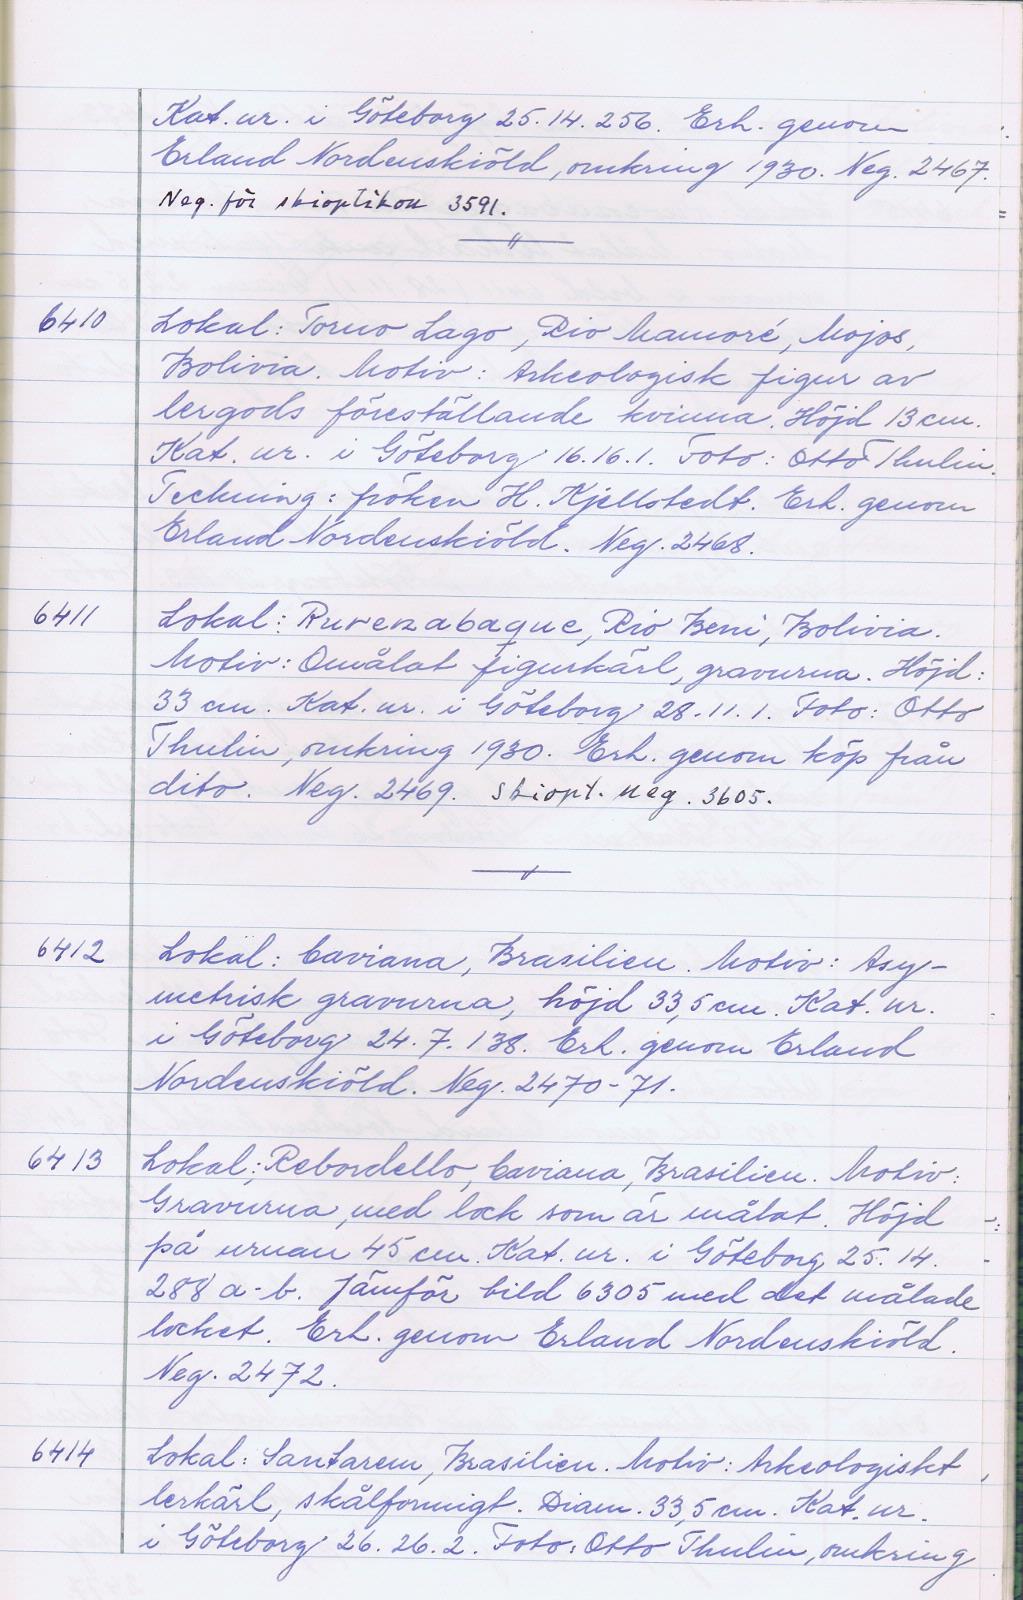 Kat. nr. i Göteborg 25.14.256. Erh. genom
Erland Nordenskiöld, omkring 1930. Neg. 2467.
Neg. för skioptikon 3591.
6410 Lokal: Torno Lago, Rio Mamoré, Mojos,
Bolivia. Motiv: Arkeologisk figur av
lergods föreställande kvinna. Höjd 13 cm.
Kat. nr. i Göteborg 16.16.1. Foto: Otto Thulin.
Teckning: fröken H. Kjellstedt. Erh. genom
Erland Nordenskiöld. Neg. 2468.
6411 Lokal: Rurenabaque, Rio Beni, Bolivia.
Motiv: Omålat figurkärl, gravurna. Höjd:
33 cm. Kat. nr. i Göteborg 28.11.1. Foto: Otto
Thulin, omkring 1930. Erh. genom köp från
dito. Neg. 2469. Skiopt. neg. 3605.
6412 Lokal: Caviana, Brasilien. Motiv: Asy-
metrisk gravurna, höjd 33,5 cm. Kat. nr.
i Göteborg 24.7.138. Erh. genom Erland
Nordenskiöld. Neg. 2470-71.
6413 Lokal: Rebordello, Caviana, Brasilien. Motiv:
Gravurna, med lock som är målat. Höjd
på urnan 45 cm. Kat. nr. i Göteborg 25.14.
288 a-b. Jämför bild 6305 med det målade
locket. Erh. genom Erland Nordenskiöld.
Neg. 2472.
6414 Lokal: Santarem, Brasilien. Motiv: Arkeologiskt
lerkärl, skålformigt. Diam. 33,5 cm. Kat. nr.
i Göteborg 26.26.2. Foto: Otto Thulin, omkring